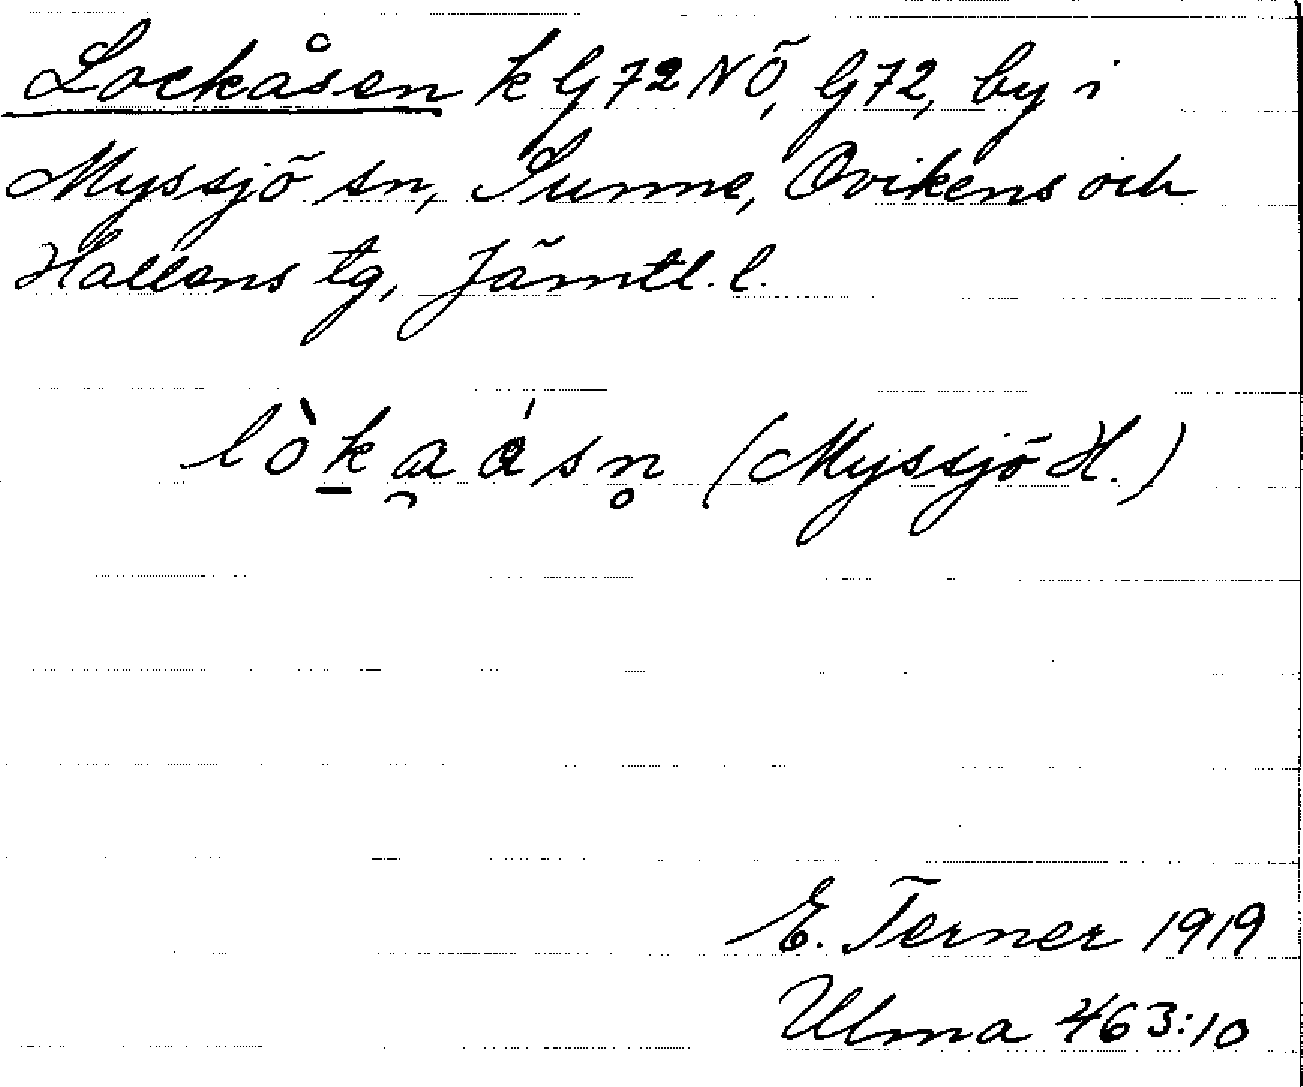 Lockåsen k G72NÖ, G72, by i
Myssjö sn, Sunne, Ovikens och
Hallens tg, Jämtl. l.
lòk̠a̯ásn̥ (Myssjö H.)
E. Terner 1919
Ulma 463:10